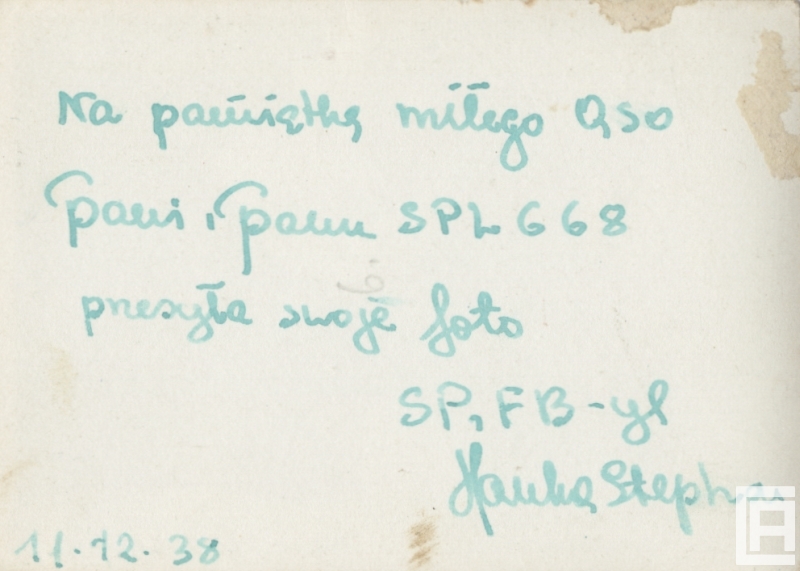 Na pamiątkę miłego QSO
Pani i Panu SPL 668
przesyła swoje foto
SP1FB-yl
Hanka Stephan
11.12.38